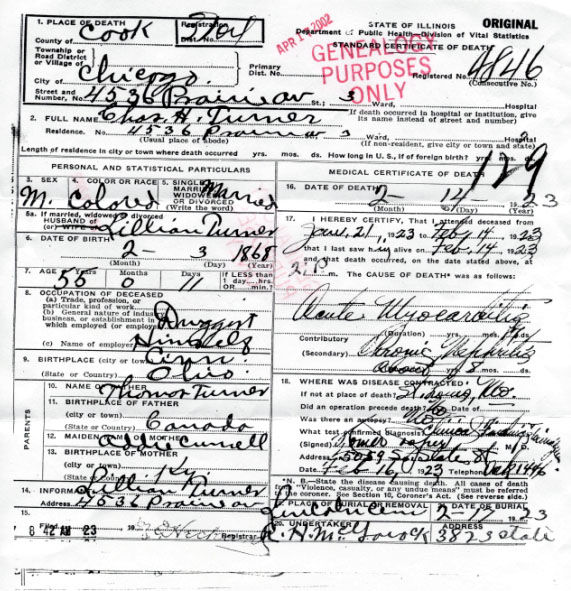 1. PLACE OF DEATH
County of Cook
Registration Dist. No.
STATE OF ILLINOIS ORIGINAL
Department of Public Health—Division of Vital Statistics
STANDARD CERTIFICATE OF DEATH
APR 2002
GENEALOGY
PURPOSES
ONLY
Township or
Road District
or Village of
City of Chicago
Primary
Dist. No.
Registered No. 4846
(Consecutive No.)
Street and
Number, No. 4536 Prairie av St.; 3 Ward, Hospital
(If death occurred in hospital or institution, give
its name instead of street and number)
2. FULL NAME Chas. H. Turner
Residence. No. 4536 Prairie av 3 Ward, Hospital
(Usual place of abode) (If non-resident, give city or town and state)
Length of residence in city or town where death occurred yrs. mos. ds. How long in U. S., if of foreign birth? yrs. mos. ds.
129
PERSONAL AND STATISTICAL PARTICULARS
3. SEX M. 4. COLOR OR RACE Colored 5. SINGLE, MARRIED, WIDOWED OR DIVORCED Married
(Write the word)
5a. If married, widowed or divorced
HUSBAND of
(or) WIFE of Lillian Turner
6. DATE OF BIRTH 2 - 3 1868
(Month) (Day) (Year)
7. AGE 55 Years 0 Months 11 Days If LESS than
1 day... hrs.
OR... min.?
8. OCCUPATION OF DECEASED
(a) Trade, profession, or
particular kind of work Druggist
(b) General nature of industry,
business, or establishment in
which employed (or employer) Himself
(c) Name of employer
9. BIRTHPLACE (city or town) Cinn.
(State or Country) Ohio
PARENTS
10. NAME OF FATHER Thomas Turner
11. BIRTHPLACE OF FATHER
(city or town)
(State or Country) Canada
12. MAIDEN NAME OF MOTHER
13. BIRTHPLACE OF MOTHER
(city or town)
(State or Country) Ky.
14. INFORMANT Lillian Turner
4536 Prairie av
15.
Filed 23 19
8 42 AM
MEDICAL CERTIFICATE OF DEATH
16. DATE OF DEATH 2 - 14 - 1923
(Month) (Day) (Year)
17. I HEREBY CERTIFY, That I attended deceased from
Jan. 21, 1923 to Feb. 14 1923
that I last saw h alive on Feb. 14 1923
and that death occurred, on the date stated above, at
m. The CAUSE OF DEATH* was as follows:
Acute Myocarditis
(Duration) yrs. mos. ds.
Contributory
(Secondary) Chronic Nephritis
(Duration) yrs. 8 mos. ds.
18. WHERE WAS DISEASE CONTRACTED
If not at place of death?
Did an operation precede death? No Date of
Was there an autopsy?
What test confirmed diagnosis? Clinical
(Signed) M. D.
Address 5059 So State St
Date Feb 16, 1923 Telephone Oak 1446
*N. B.—State the disease causing death. All cases of death
from "Violence, casualty, or any undue means" must be referred
to the coroner. See Section 10, Coroner's Act. (See reverse side.)
19. PLACE OF BURIAL OR REMOVAL DATE OF BURIAL
Lincoln Cem 2-17 1923
20. UNDERTAKER ADDRESS
3823 State